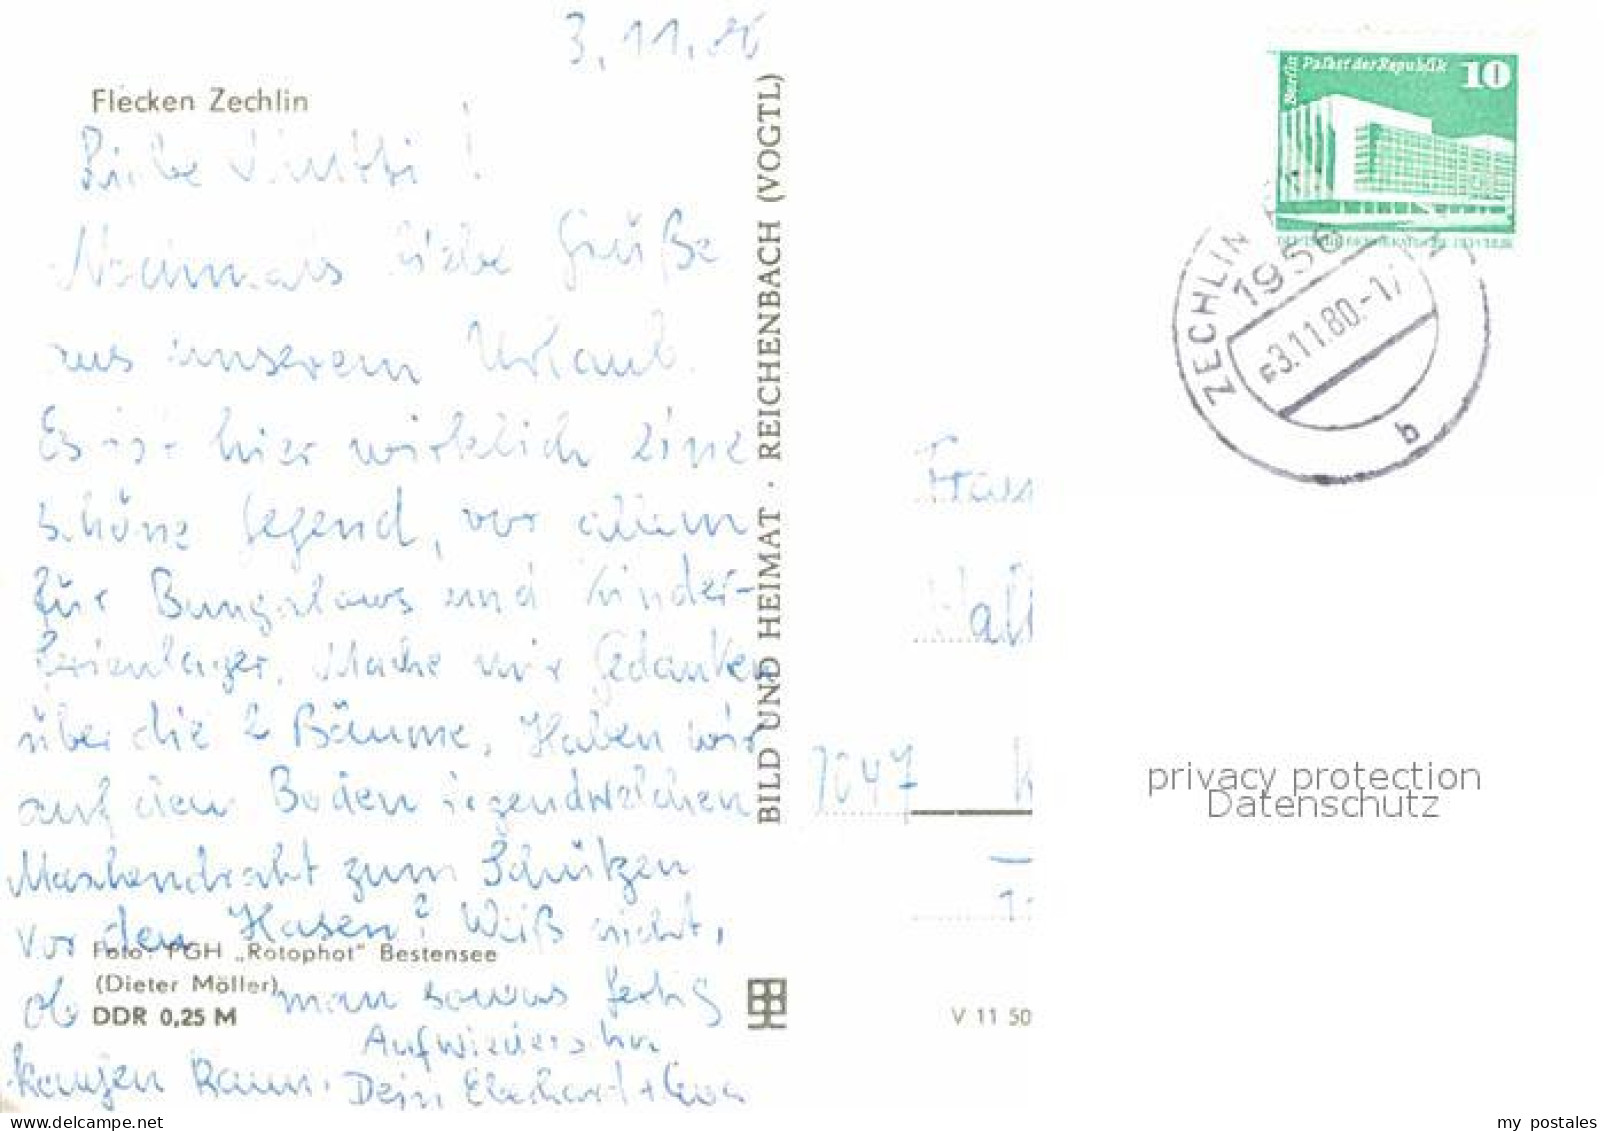 3.11.80
Flecken Zechlin
Liebe Mutti!
Nochmals liebe Grüße
aus unserem Urlaub.
Es ist hier wirklich eine
schöne Gegend, vor allem
für Bungalows und Kinder-
ferienlager. Mache mir Gedanken
über die 2 Bäume. Haben wir
auf dem Boden irgendwelchen
Maschendraht zum Schützen
vor den Hasen? Weiß nicht,
ob man sowas fertig
kaufen kann.
Aufwiedersehn
Dein Eberhard + Eva
Foto: PGH „Rotophot" Bestensee
(Dieter Möller)
DDR 0,25 M
BILD UND HEIMAT · REICHENBACH (VOGTL)
V 11 50
Berlin Palast der Republik 10
DEUTSCHE DEMOKRATISCHE REPUBLIK
ZECHLIN
1956
-3.11.80.-17
b
Frau
7047
privacy protection
Datenschutz
my postales